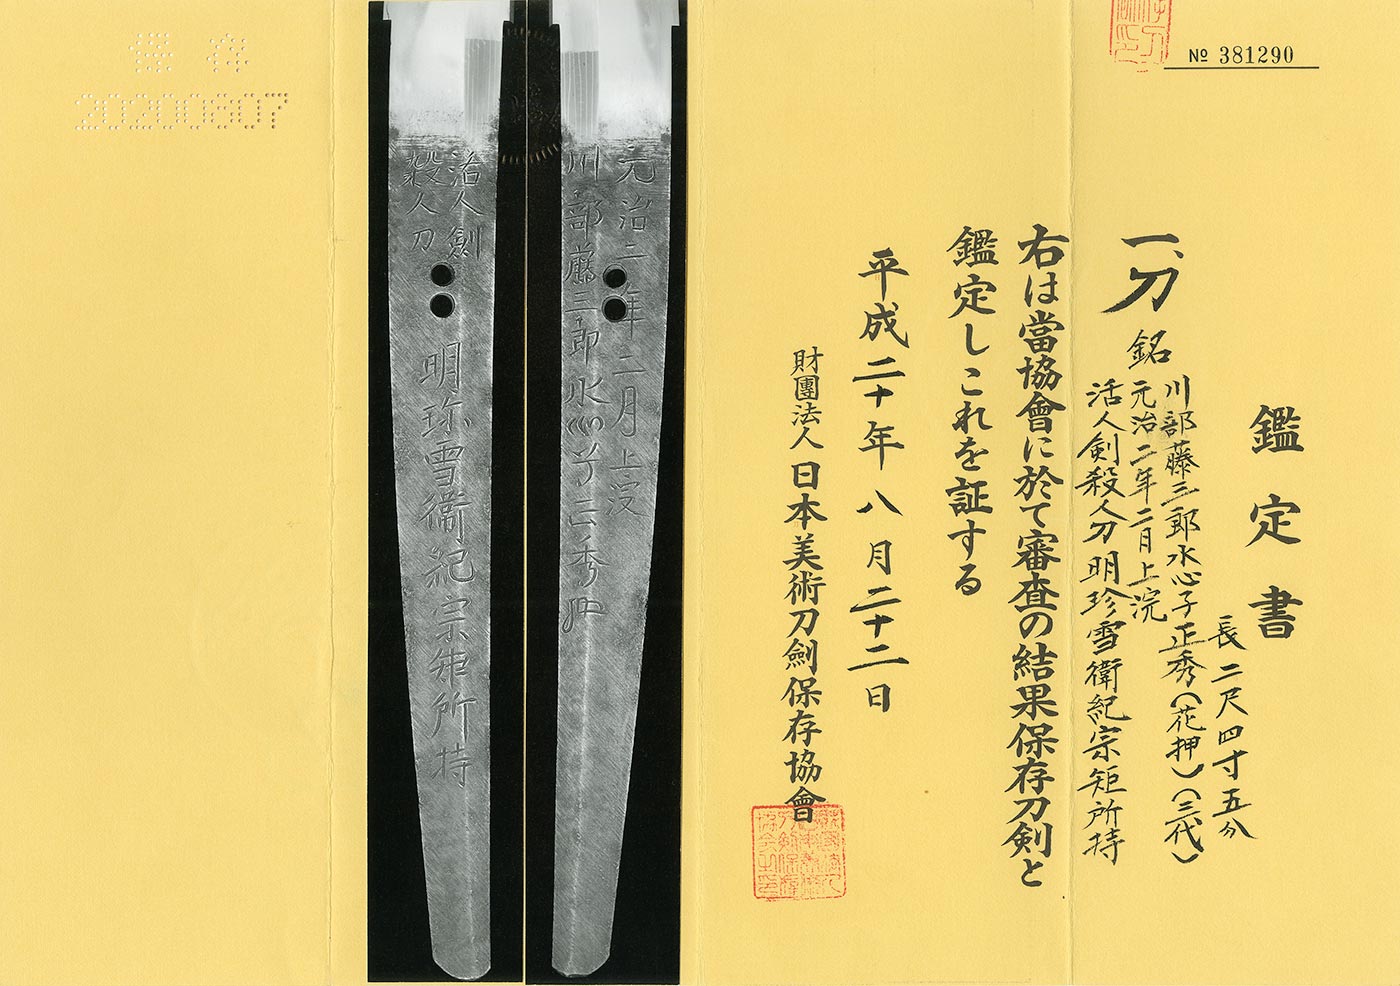 № 381290
鑑定書
一、刀 銘 川部藤三郎水心子正秀(花押)(三代)
元治二年二月上浣
活人剣殺人刀明珍雪衛紀宗矩所持
長二尺四寸五分
右は當協會に於て審査の結果保存刀剣と
鑑定しこれを証する
平成二十年八月二十二日
財團法人日本美術刀劍保存協會
元治二年二月上浣
川部藤三郎水心子正秀
活人劍
殺人刀
明珍雪衛紀宗矩所持
保存
20200807